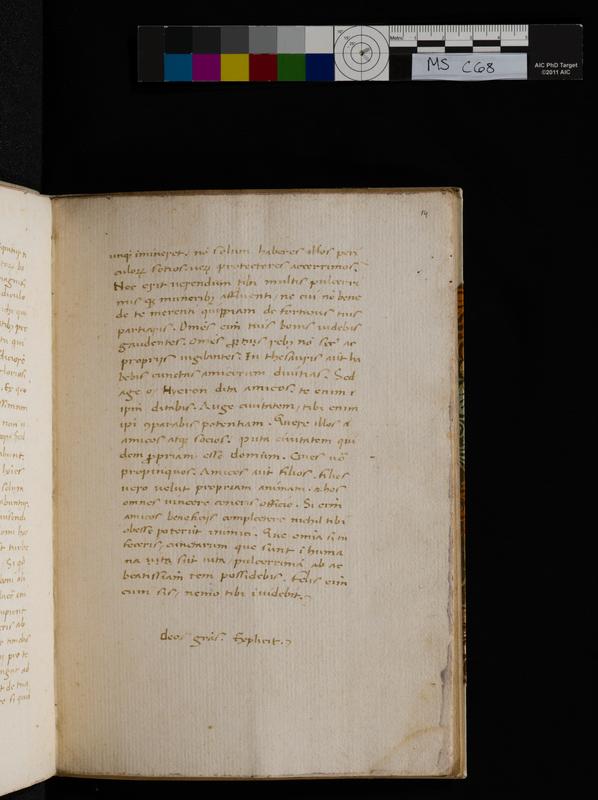 MS C68
AIC PhD Target
©2011 AIC
14
unq̄ imineret, nō solum haberes illos peri
culorꝝ socios, uerꝫ protectores acerrimos.
Nec erit uerendum tibi multis pulcerri
mis qꝫ muneribꝫ affluenti, ne cui nō bene
de te merenti quippiam de fortunis tuis
partiaris. Om̄es eīm tuis bonis uidebis
gaudentes. Om̄es ꝓ tuis rebꝫ nō secꝰ ac
proprijs uigilantes. In thesauris aūt ha
bebis cunctas amicorum diuitias. Sed
age o Hyeron dita amicos, te enim i
ipm̄ ditabis. Auge ciuitatem, tibi enim
ipi cparabis potentiam. Quere illos
amicos atqꝫ socios. puta ciuitatem qui
dem ꝓpriam esse domum. Ciues uō
propinquos. Amicos aūt filios. filios
uero uelut propriam animam. & hos
omnes uincere coneris officio. Si eīm
amicos beneficijs complectere nichil tibi
obesse poterūt inimici. Que omīa si tu
feceris, cunctarum que sunt i huma
na uita sūt uita, pulcerrimā ab ac
beatissimam rem possidebis. Felis eīm
cum sis, nemo tibi īuidebit.
deos grās. Explicit.